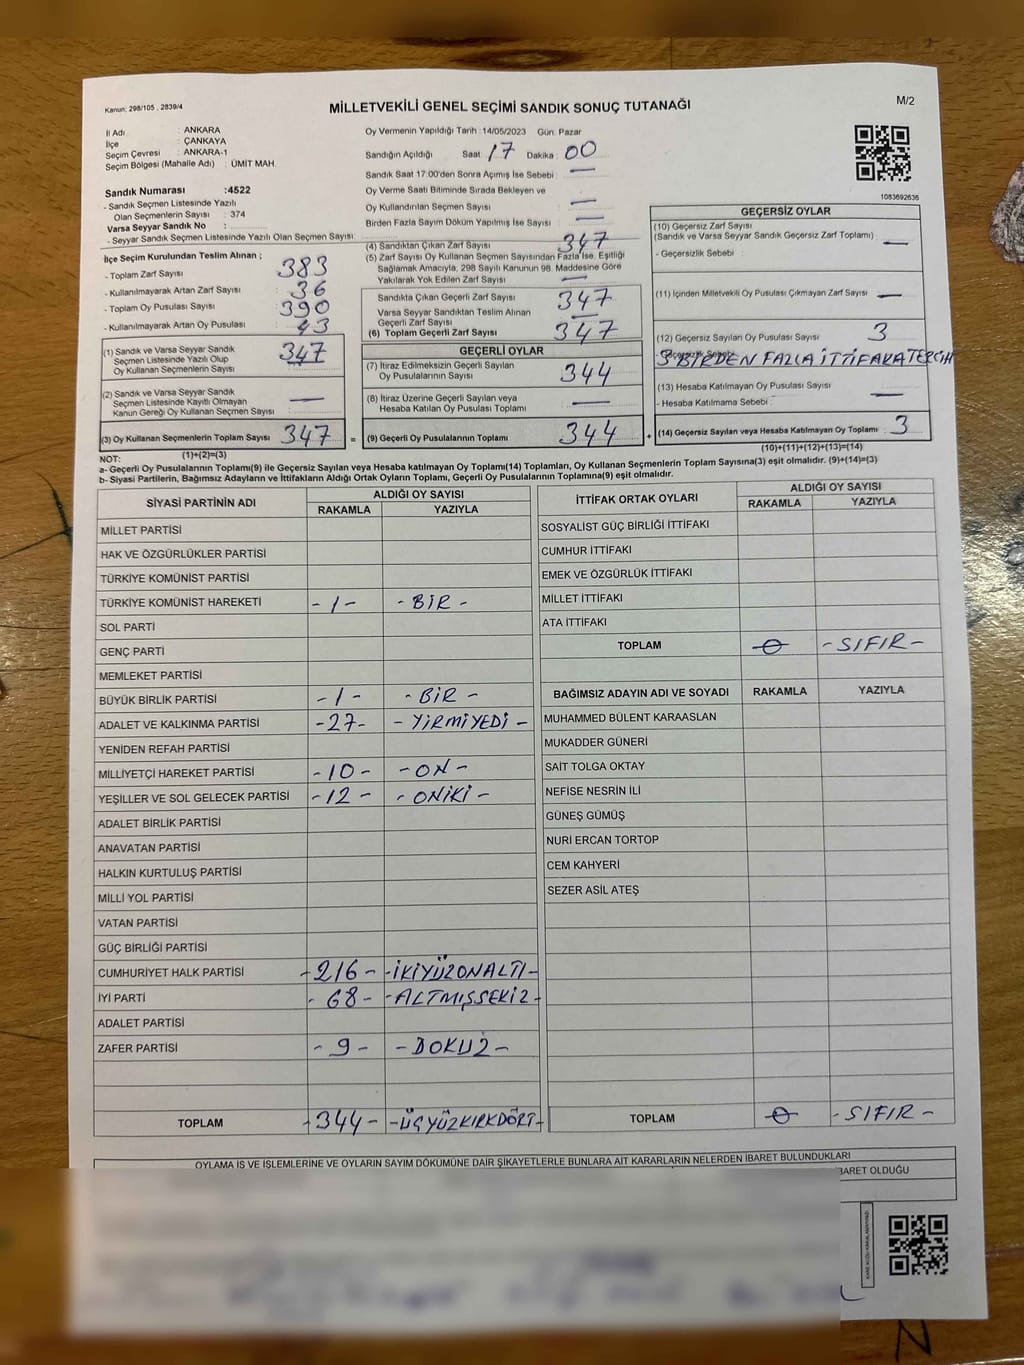 Kanun: 298/105 , 2839/4
MİLLETVEKİLİ GENEL SEÇİMİ SANDIK SONUÇ TUTANAĞI
M/2
İl Adı : ANKARA
İlçe : ÇANKAYA
Seçim Çevresi : ANKARA-1
Seçim Bölgesi (Mahalle Adı) : ÜMİT MAH.
Oy Vermenin Yapıldığı Tarih :14/05/2023 Gün: Pazar
Sandığın Açıldığı Saat : 17 Dakika : 00
Sandık Saat 17:00'den Sonra Açımış İse Sebebi : —
Oy Verme Saati Bitiminde Sırada Bekleyen ve
Oy Kullandırılan Seçmen Sayısı : —
Birden Fazla Sayım Döküm Yapılmış İse Sayısı : —
1083692636
Sandık Numarası :4522
- Sandık Seçmen Listesinde Yazılı
Olan Seçmenlerin Sayısı : 374
Varsa Seyyar Sandık No :
- Seyyar Sandık Seçmen Listesinde Yazılı Olan Seçmen Sayısı:
İlçe Seçim Kurulundan Teslim Alınan ;
- Toplam Zarf Sayısı : 383
- Kullanılmayarak Artan Zarf Sayısı : 36
- Toplam Oy Pusulası Sayısı : 390
- Kullanılmayarak Artan Oy Pusulası : 43
(1) Sandık ve Varsa Seyyar Sandık
Seçmen Listesinde Yazılı Olup
Oy Kullanan Seçmenlerin Sayısı : 347
(2) Sandık ve Varsa Seyyar Sandık
Seçmen Listesinde Kayıtlı Olmayan
Kanun Gereği Oy Kullanan Seçmen Sayısı : —
(3) Oy Kullanan Seçmenlerin Toplam Sayısı : 347 =
(1)+(2)=(3)
(4) Sandıktan Çıkan Zarf Sayısı : 347
(5) Zarf Sayısı Oy Kullanan Seçmen Sayısından Fazla İse, Eşitliği
Sağlamak Amacıyla, 298 Sayılı Kanunun 98. Maddesine Göre
Yakılarak Yok Edilen Zarf Sayısı : —
Sandıkta Çıkan Geçerli Zarf Sayısı : 347
Varsa Seyyar Sandıktan Teslim Alınan
Geçerli Zarf Sayısı : —
(6) Toplam Geçerli Zarf Sayısı : 347
GEÇERLİ OYLAR
(7) İtiraz Edilmeksizin Geçerli Sayılan
Oy Pusulalarının Sayısı : 344
(8) İtiraz Üzerine Geçerli Sayılan veya
Hesaba Katılan Oy Pusulası Toplamı : —
(9) Geçerli Oy Pusulalarının Toplamı : 344 +
GEÇERSİZ OYLAR
(10) Geçersiz Zarf Sayısı
(Sandık ve Varsa Seyyar Sandık Geçersiz Zarf Toplamı) : —
- Geçersizlik Sebebi :
(11) İçinden Milletvekili Oy Pusulası Çıkmayan Zarf Sayısı : —
(12) Geçersiz Sayılan Oy Pusulası Sayısı : 3
- Geçersizlik Sebebi : 3 BİRDEN FAZLA İTTİFAKA TERCİH
(13) Hesaba Katılmayan Oy Pusulası Sayısı :
- Hesaba Katılmama Sebebi : —
(14) Geçersiz Sayılan veya Hesaba Katılmayan Oy Toplamı : 3
(10)+(11)+(12)+(13)=(14)
NOT:
a- Geçerli Oy Pusulalarının Toplamı(9) ile Geçersiz Sayılan veya Hesaba katılmayan Oy Toplamı(14) Toplamları, Oy Kullanan Seçmenlerin Toplam Sayısına(3) eşit olmalıdır. (9)+(14)=(3)
b- Siyasi Partilerin, Bağımsız Adayların ve İttifakların Aldığı Ortak Oyların Toplamı, Geçerli Oy Pusulalarının Toplamına(9) eşit olmalıdır.
SİYASİ PARTİNİN ADI ALDIĞI OY SAYISI
RAKAMLA YAZIYLA
MİLLET PARTİSİ
HAK VE ÖZGÜRLÜKLER PARTİSİ
TÜRKİYE KOMÜNİST PARTİSİ
TÜRKİYE KOMÜNİST HAREKETİ - 1 - - BİR -
SOL PARTİ
GENÇ PARTİ
MEMLEKET PARTİSİ
BÜYÜK BİRLİK PARTİSİ - 1 - - BİR -
ADALET VE KALKINMA PARTİSİ - 27 - - YİRMİYEDİ -
YENİDEN REFAH PARTİSİ
MİLLİYETÇİ HAREKET PARTİSİ - 10 - - ON -
YEŞİLLER VE SOL GELECEK PARTİSİ - 12 - - ONİKİ -
ADALET BİRLİK PARTİSİ
ANAVATAN PARTİSİ
HALKIN KURTULUŞ PARTİSİ
MİLLİ YOL PARTİSİ
VATAN PARTİSİ
GÜÇ BİRLİĞİ PARTİSİ
CUMHURİYET HALK PARTİSİ - 216 - - İKİYÜZONALTI -
İYİ PARTİ - 68 - - ALTMIŞSEKİZ -
ADALET PARTİSİ
ZAFER PARTİSİ - 9 - - DOKUZ -
TOPLAM - 344 - - ÜÇYÜZKIRKDÖRT -
İTTİFAK ORTAK OYLARI ALDIĞI OY SAYISI
RAKAMLA YAZIYLA
SOSYALİST GÜÇ BİRLİĞİ İTTİFAKI
CUMHUR İTTİFAKI
EMEK VE ÖZGÜRLÜK İTTİFAKI
MİLLET İTTİFAKI
ATA İTTİFAKI
TOPLAM 0 - SIFIR -
BAĞIMSIZ ADAYIN ADI VE SOYADI RAKAMLA YAZIYLA
MUHAMMED BÜLENT KARAASLAN
MUKADDER GÜNERİ
SAİT TOLGA OKTAY
NEFİSE NESRİN İLİ
GÜNEŞ GÜMÜŞ
NURİ ERCAN TORTOP
CEM KAHYERİ
SEZER ASİL ATEŞ
TOPLAM 0 - SIFIR -
OYLAMA İŞ VE İŞLEMLERİNE VE OYLARIN SAYIM DÖKÜMÜNE DAİR ŞİKAYETLERLE BUNLARA AİT KARARLARIN NELERDEN İBARET BULUNDUKLARI
BARET OLDUĞU